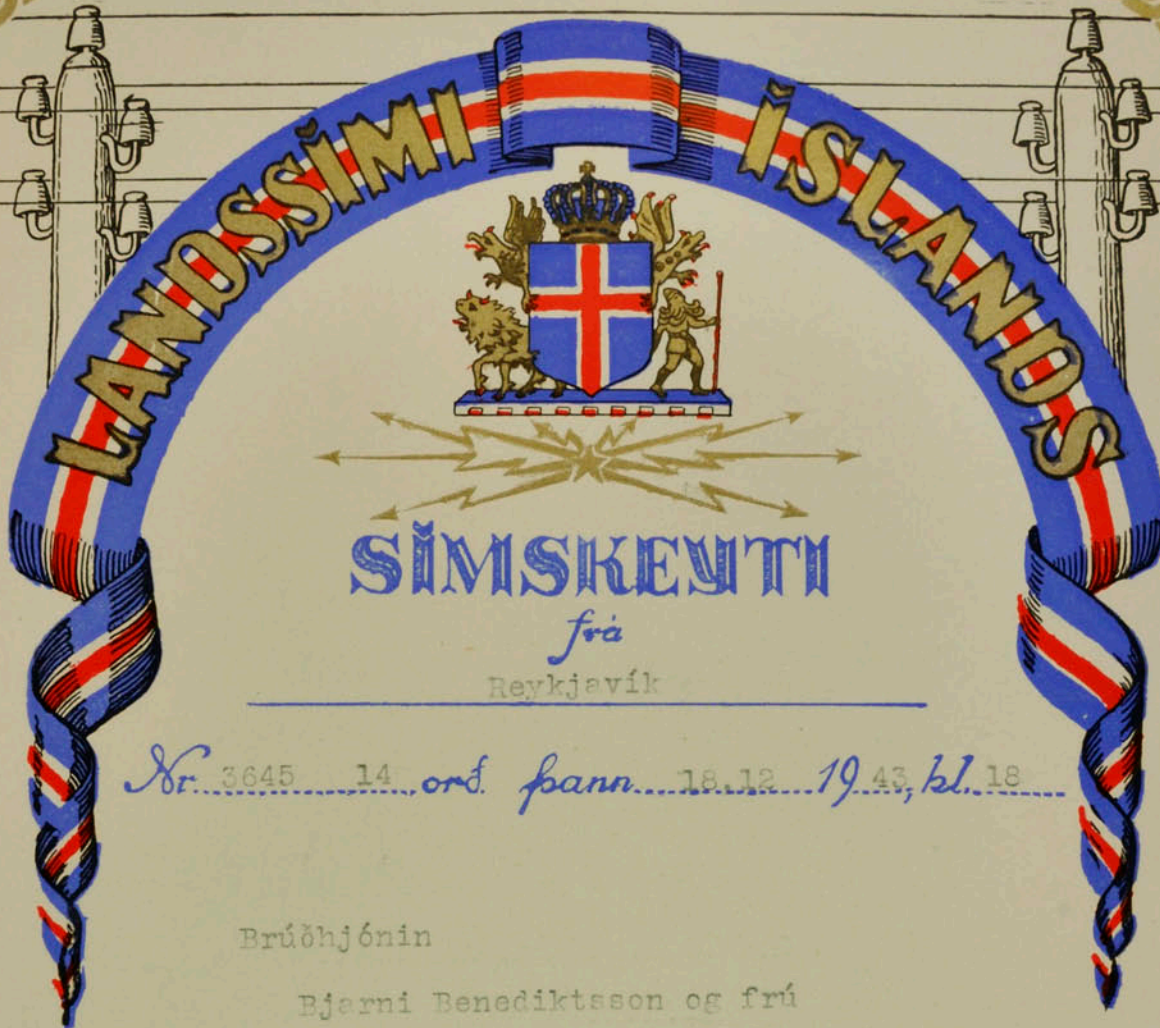 LANDSSÍMI ÍSLANDS
SÍMSKEYTI
frá
Reykjavík
Nr. 3645 14 orð. þann 18.12 19 43, kl. 18
Brúðhjónin
Bjarni Benediktsson og frú